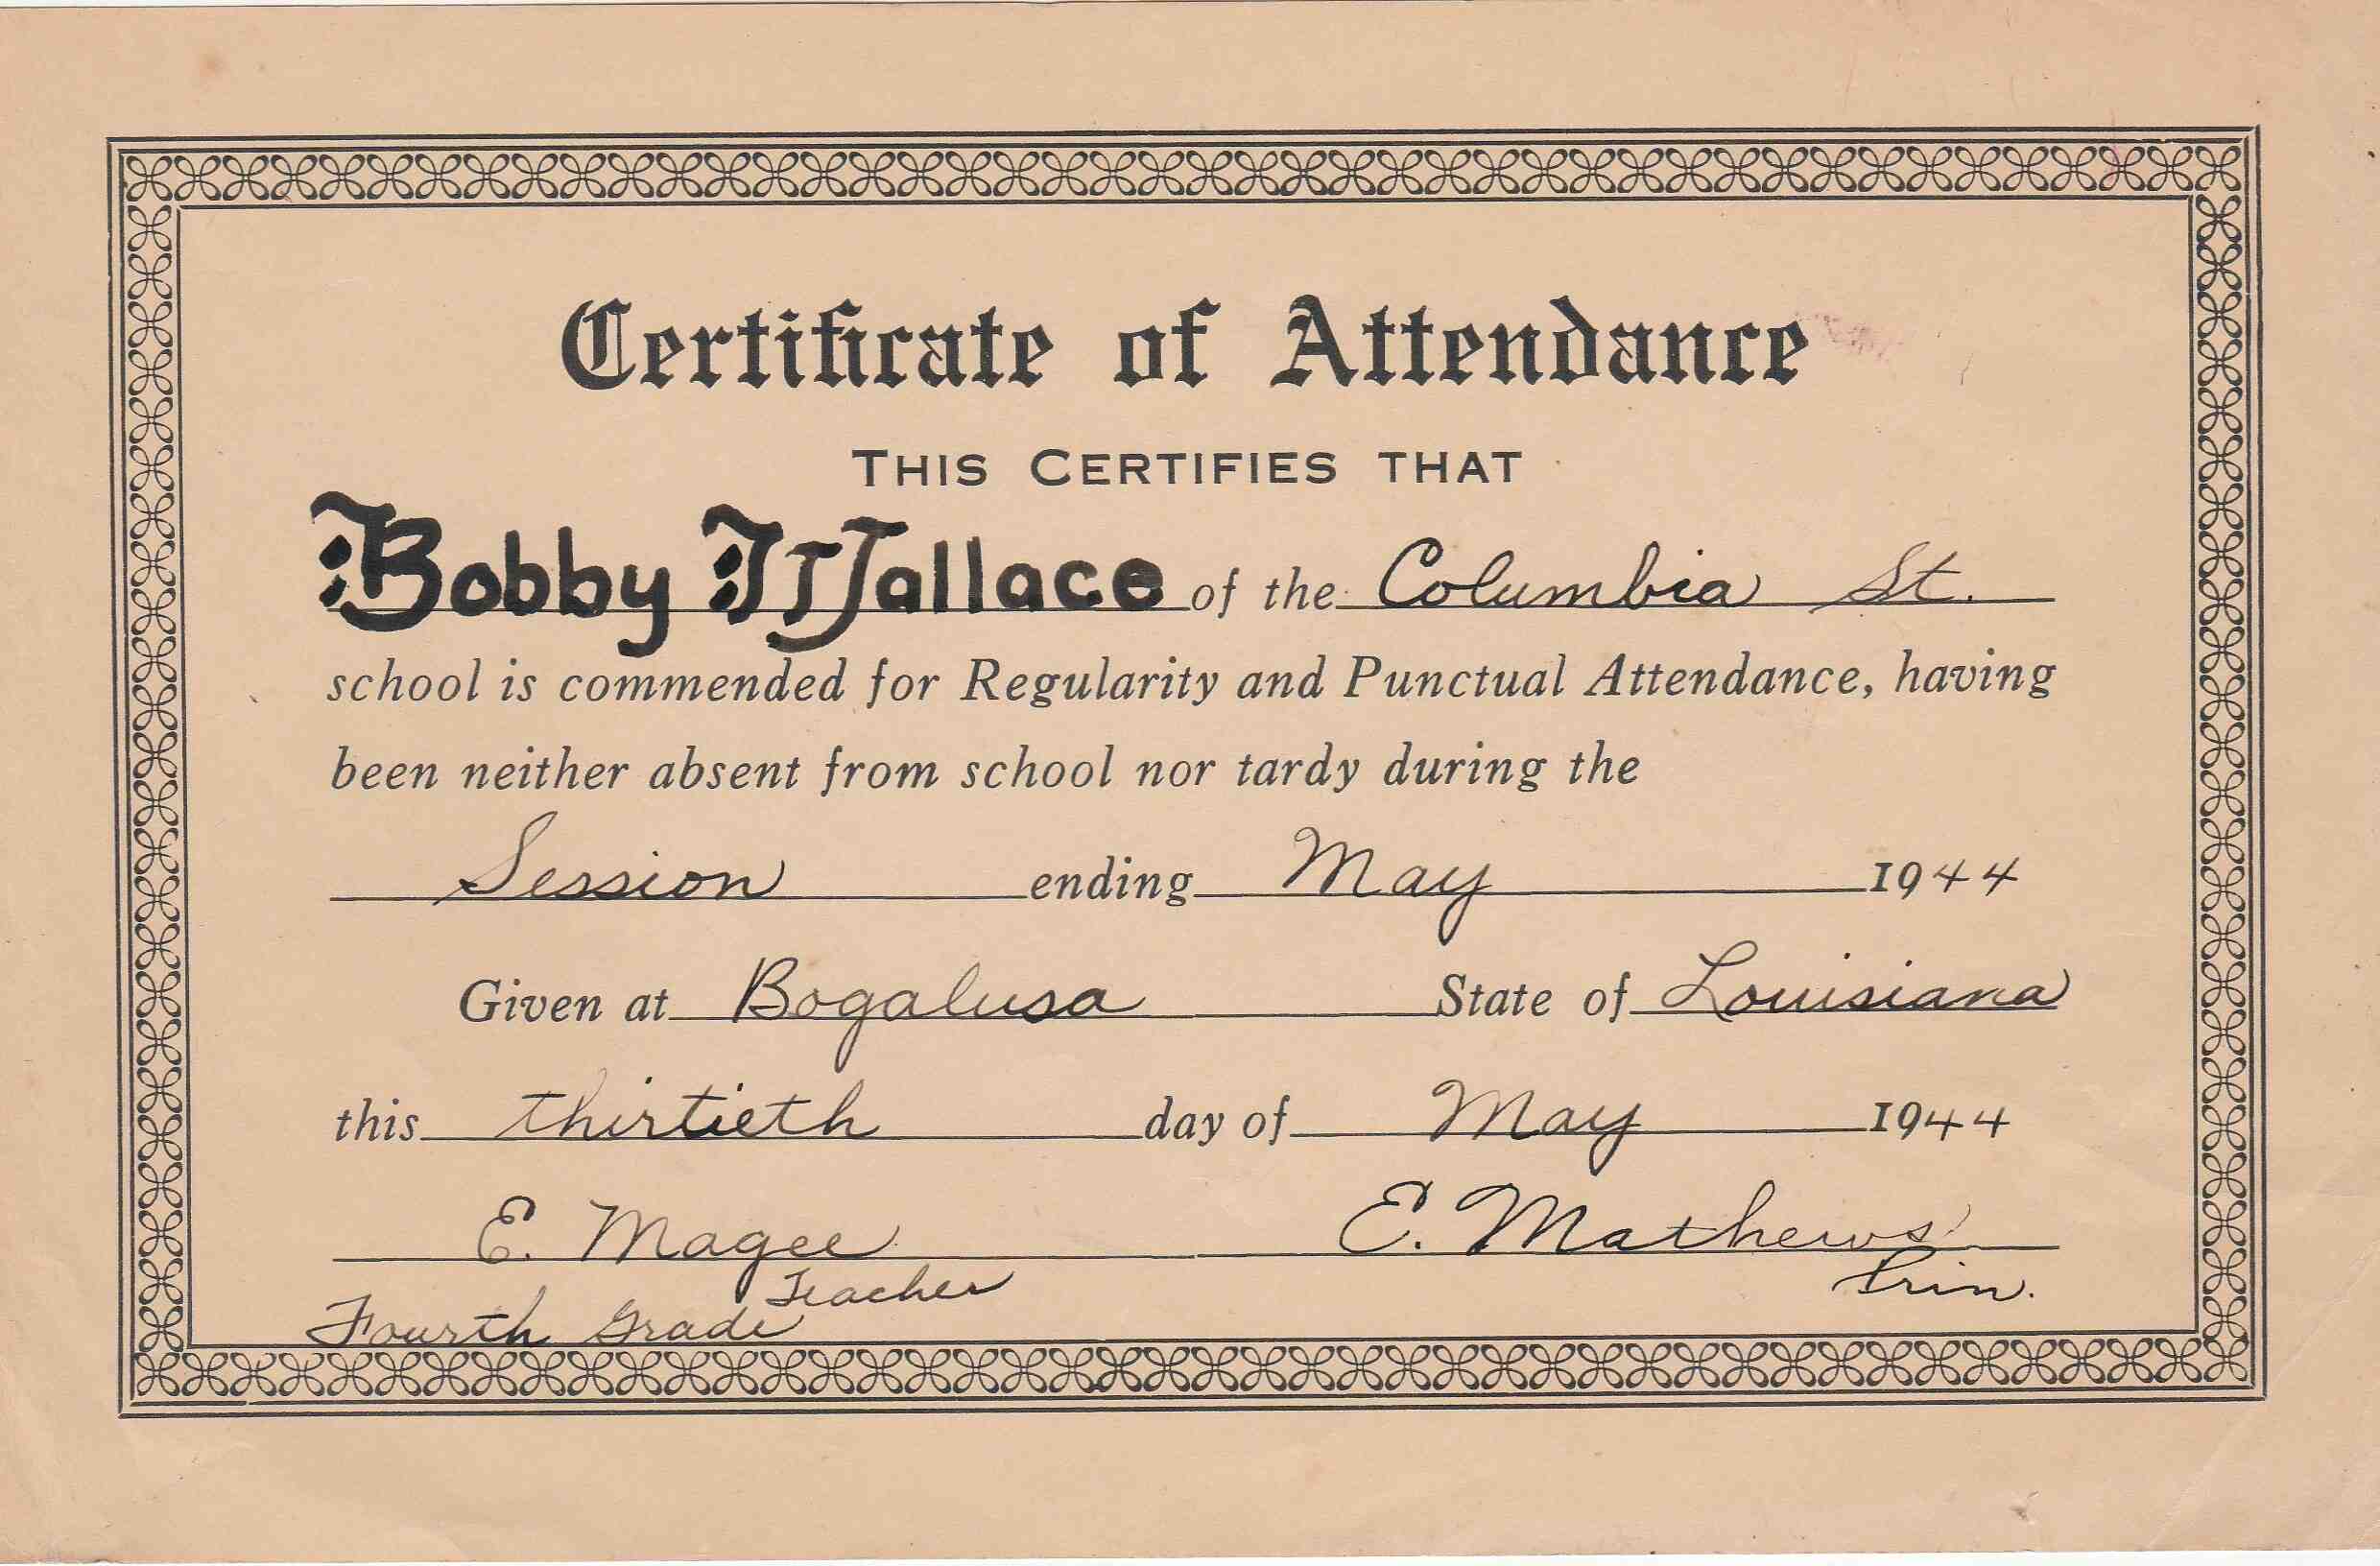 Certificate of Attendance
THIS CERTIFIES THAT
Bobby Wallace of the Columbia St.
school is commended for Regularity and Punctual Attendance, having
been neither absent from school nor tardy during the
Session ending May 1944
Given at Bogalusa State of Louisiana
this thirtieth day of May 1944
E. Magee E. Mathews
Teacher Prin.
Fourth Grade